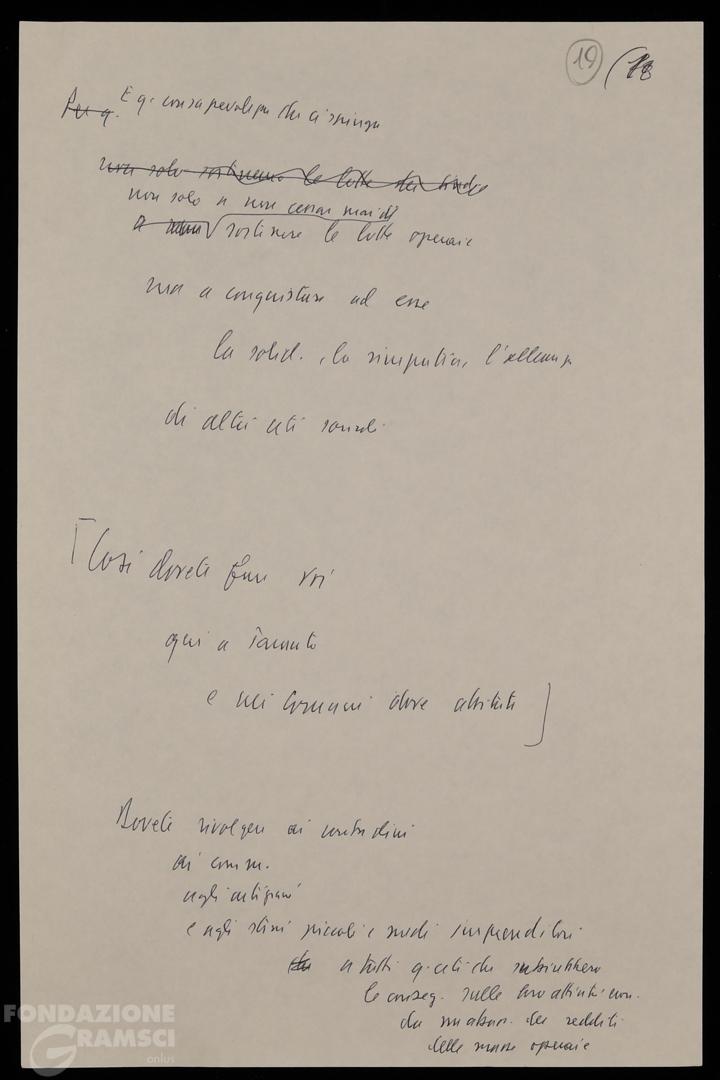 19 (18
Per q. E q. consapevolezza che ci spinge
non solo sosteniamo le lotte dei sindac
non solo a non cessar mai di
a sostenere le lotte operaie
ma a conquistare ad esse
la solid., la simpatia, l'alleanza
di altri ceti sociali
[Così dovete fare voi
qui a Taranto
e nei Comuni dove abitate]
Dovete rivolgervi ai contadini
ai comm.
agli artigiani
e agli stessi piccoli e medi imprenditori
a tutti q. ceti che subirebbero
le conseg. sulle loro attività econ.
da un abbas. dei redditi
delle masse operaie
FONDAZIONE
GRAMSCI
onlus